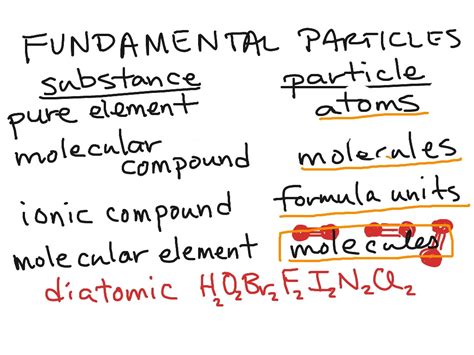 FUNDAMENTAL PARTICLES
substance particle
pure element atoms
molecular compound molecules
ionic compound formula units
molecular element molecules
diatomic H₂O₂Br₂F₂I₂N₂Cl₂